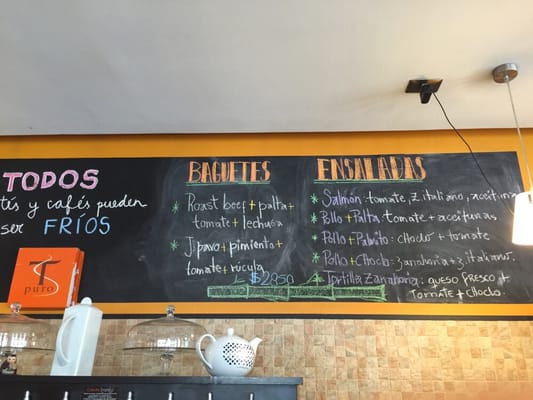 TODOS
tés y cafés pueden
ser FRÍOS
BAGUETES
Roast beef + palta +
tomate + lechuga
Jipavo + pimiento +
tomate + rúcula
$2950
ENSALADAS
Salmón: tomate, z.italiano, aceit
Pollo + Palta: tomate + aceitunas
Pollo + Palmito: choclo + tomate
Pollo + Choclo: zanahoria + z.italiano.
Tortilla Zanahoria: queso fresco +
Tomate + choclo
T
puro